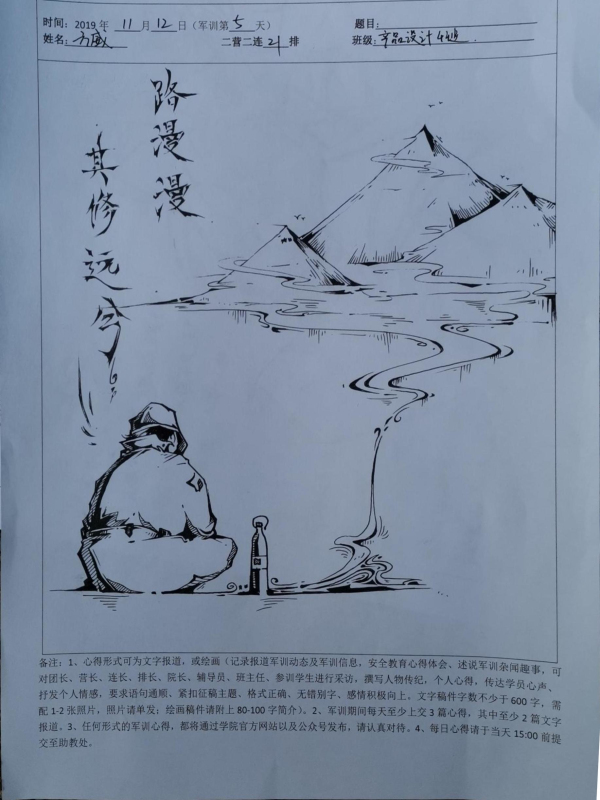 时间：2019 年 11 月 12 日（军训第 5 天）
题目：
姓名：方威
二营二连 21 排
班级：产品设计
路漫漫
其修远兮
备注：1、心得形式可为文字报道，或绘画（记录报道军训动态及军训信息，安全教育心得体会、述说军训杂闻趣事，可
对团长、营长、连长、排长、院长、辅导员、班主任、参训学生进行采访，撰写人物传纪，个人心得，传达学员心声、
抒发个人情感，要求语句通顺、紧扣征稿主题、格式正确、无错别字、感情积极向上，文字稿件字数不少于 600 字，需
配 1-2 张照片，照片请单发；绘画稿件请附上 80-100 字简介）。2、军训期间每天至少上交 3 篇心得，其中至少 2 篇文字
报道。3、任何形式的军训心得，都将通过学院官方网站以及公众号发布，请认真对待。4、每日心得请于当天 15:00 前提
交至助教处。